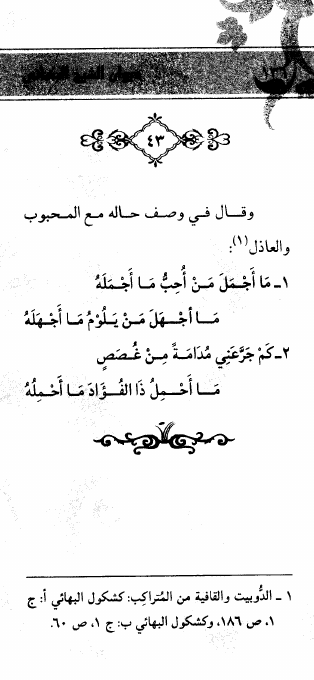 ٤٣
وقال في وصف حاله مع المحبوب
والعاذل(١):
١ـ مَا أَجْمَلَ مَنْ أُحِبُّ مَا أَجْمَلَهُ
مَا أجْهَلَ مَنْ يَلُوْمُ مَا أَجْهَلَهُ
٢ـ كَمْ جَرَّعَنِي مُدَامَةً مِنْ غُصَصٍ
مَا أَحْمِلُ ذَا الفُؤَادَ مَا أَحْمِلُهُ
١ ـ الدُّوبيت والقافية من المُتراكِب: كشكول البهائي أ: ج
١، ص ١٨٦، وكشكول البهائي ب: ج ١، ص ٦٠.